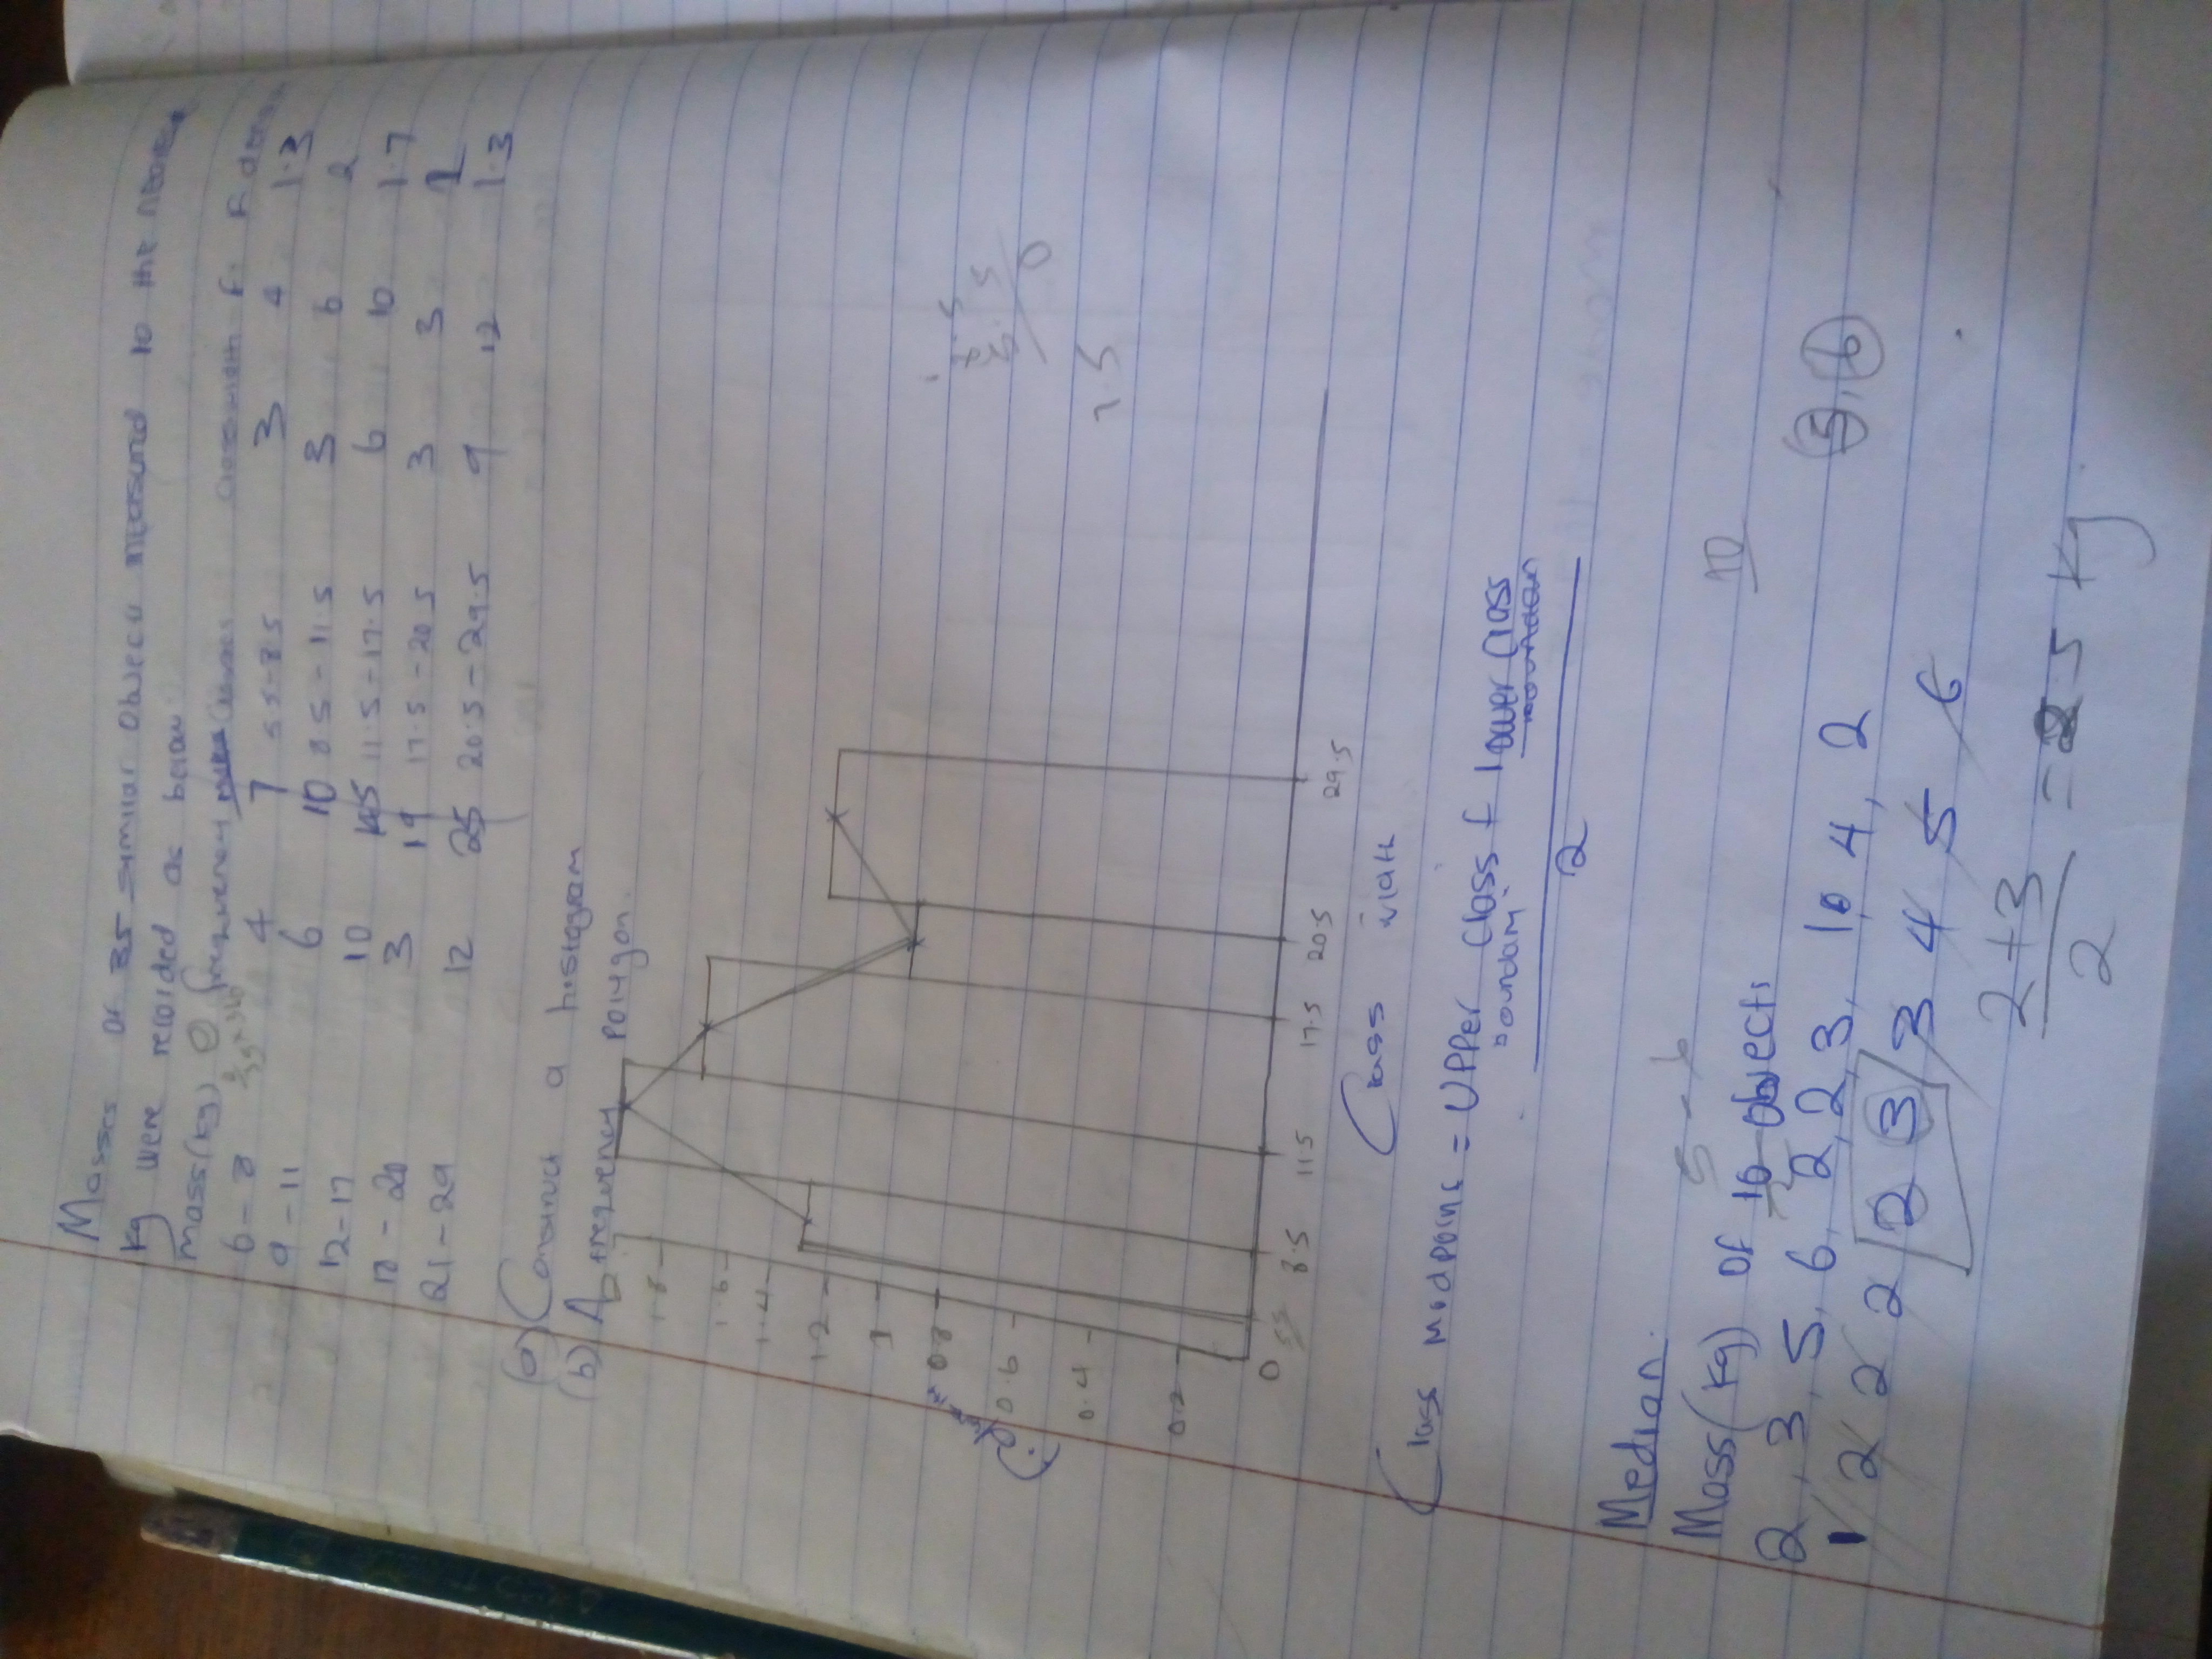 Masses of 35 similar objects measured to the nearest
kg were recorded as below
mass(kg) θ frequency classwidth f. F. dens
6 - 8 4 7 5.5-8.5 3 4 1.3
9 - 11 6 10 8.5 - 11.5 3 6 2
12-17 10 14.5 11.5-17.5 6 10 1.7
18 - 20 3 19 17.5-20.5 3 3 1
21-29 12 25 20.5-29.5 9 12 1.3
(a) Construct a histogram
(b) A frequency polygon.
2
1.8
1.6
1.4
1.2
1
0.8
F. density
0.6
0.4
0.2
0 5.5 8.5 11.5 17.5 20.5 29.5
5
5
0
7.5
Class width
Class midpoint = Upper class + lower class
boundary boundary
2
Median.
5 - 6
Mass(kg) of 10 objects
10
2, 3, 5, 6, 2, 2, 3, 1, 4, 2
5, 6
1 2 2 2 2 3 3 4 5 6
2+3
2
= 2.5 kg